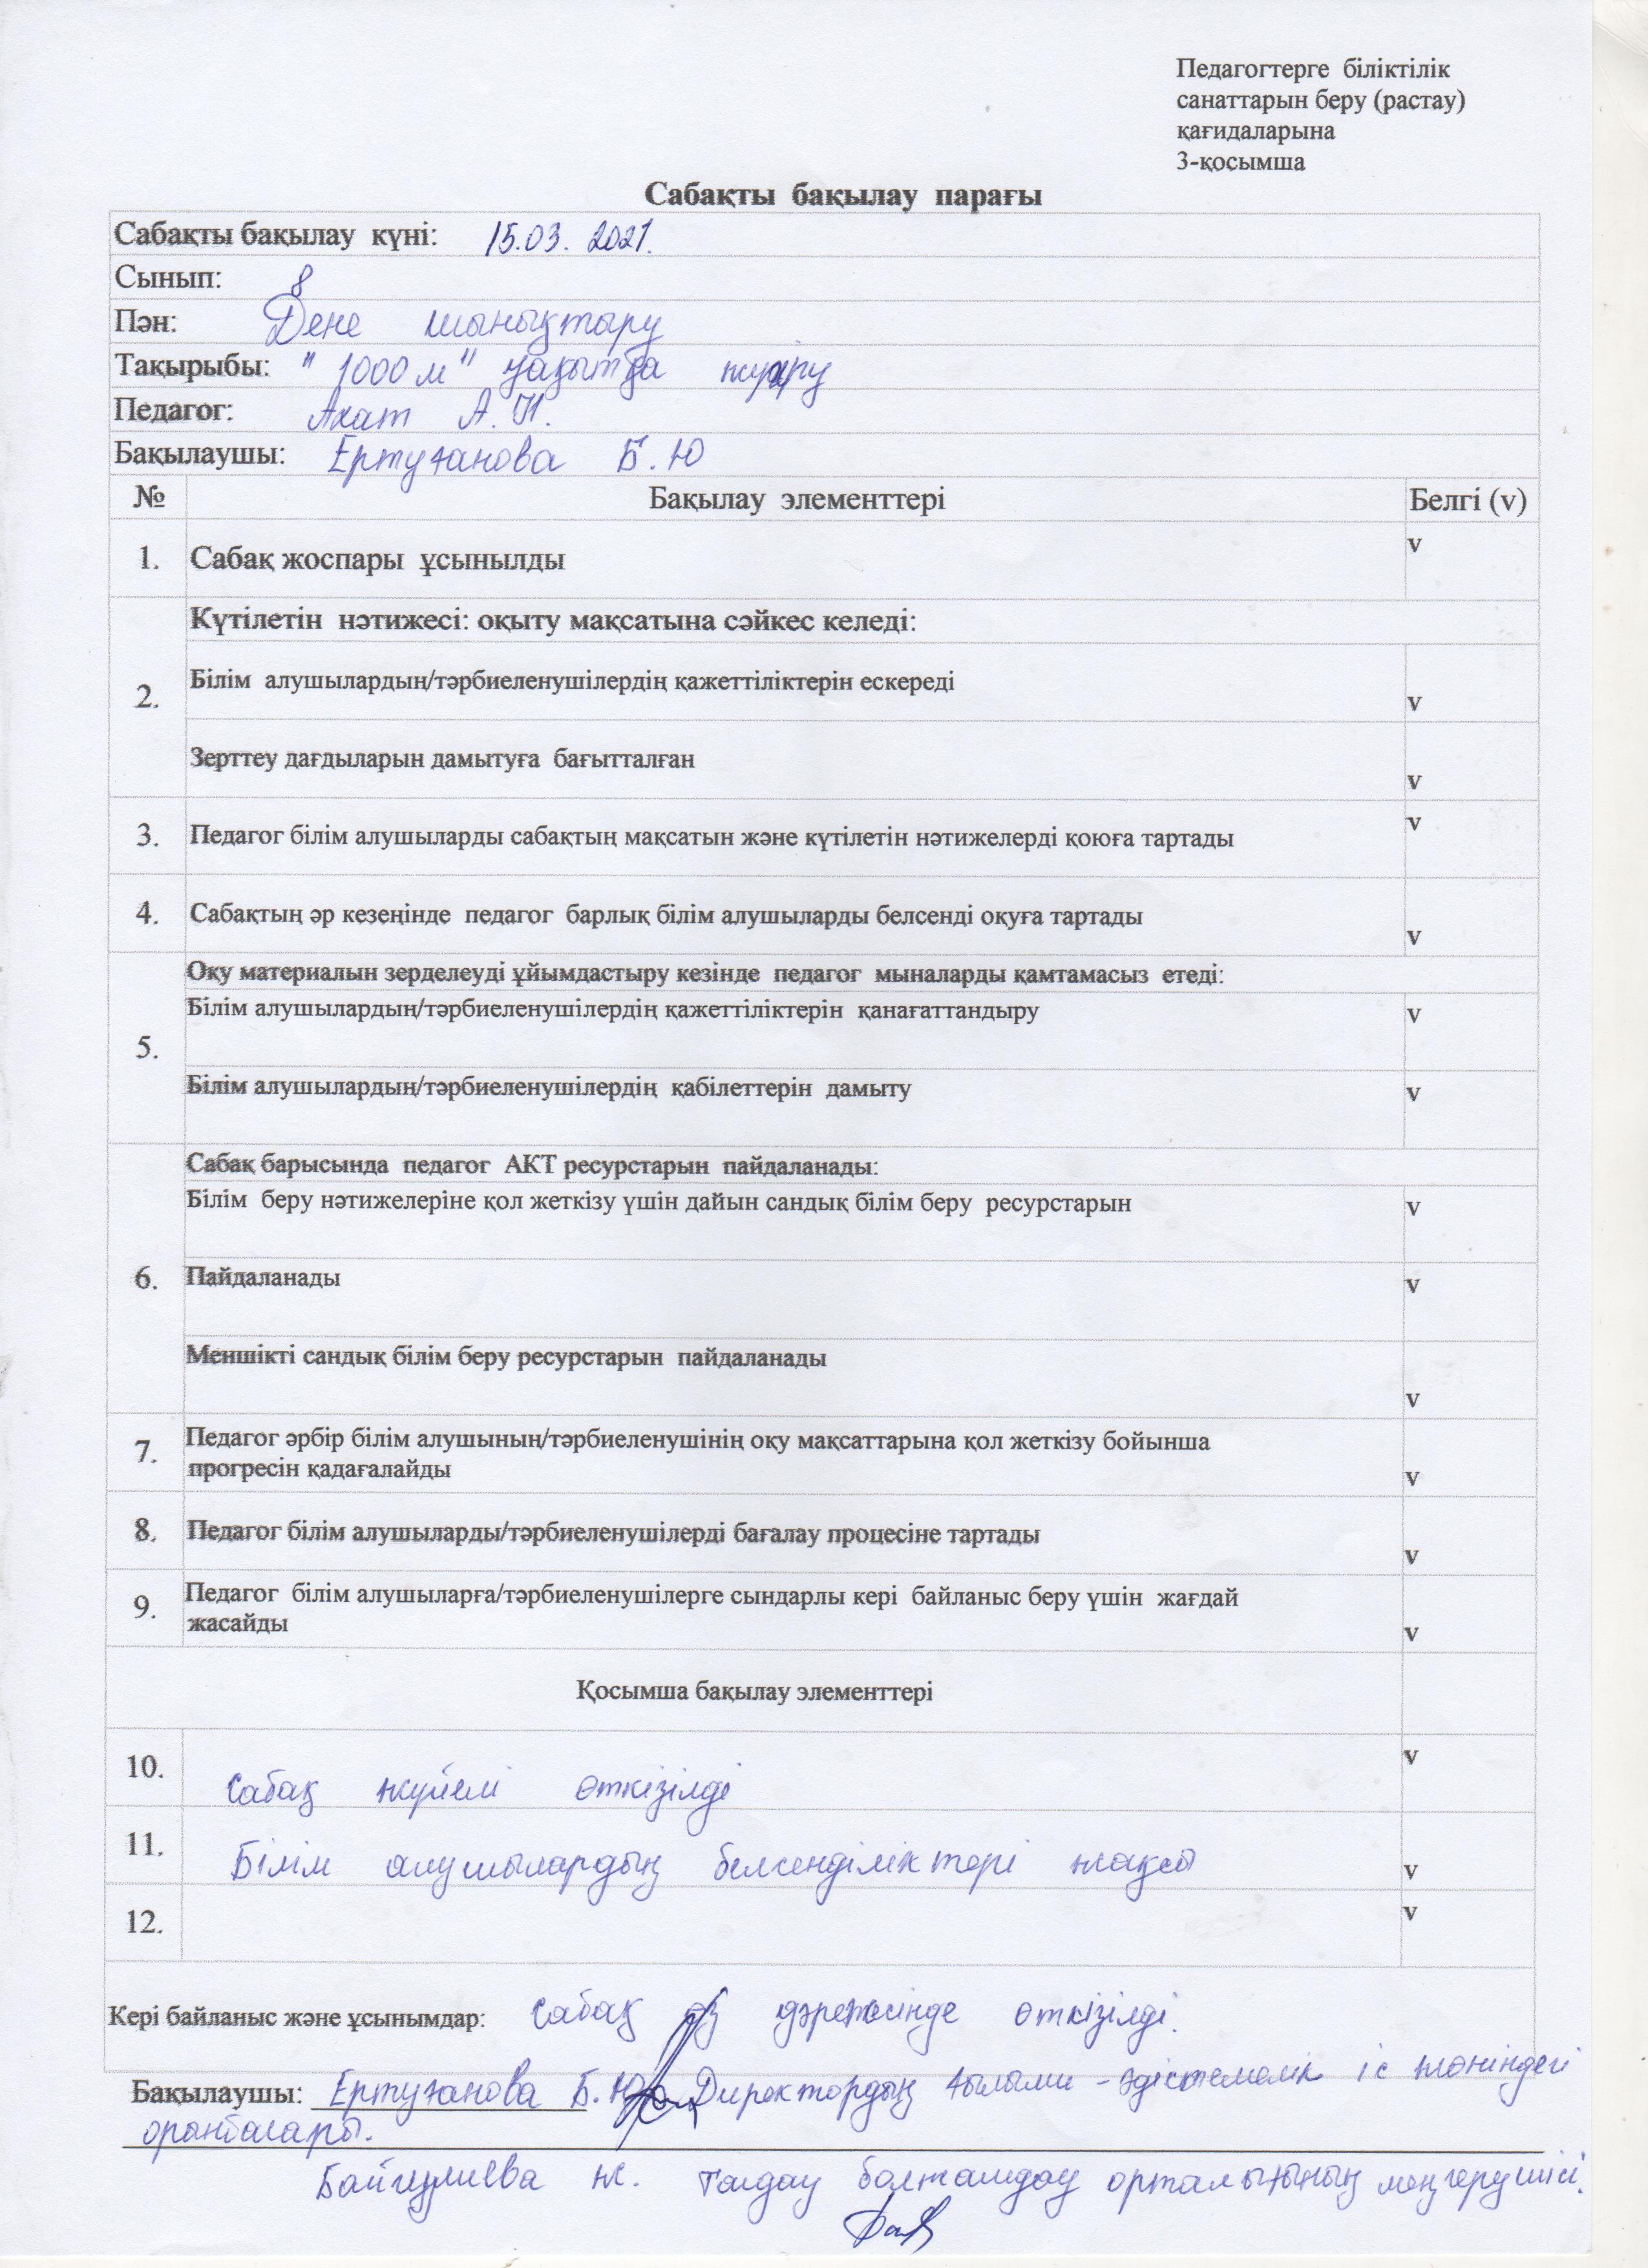 Педагогтерге біліктілік
санаттарын беру (растау)
қағидаларына
3-қосымша
Сабақты бақылау парағы
Сабақты бақылау күні: 15.03. 2021.
Сынып: 8
Пән: Дене шынықтыру
Тақырыбы: "1000 м" уақытқа жүгіру
Педагог: Ахат А. Н.
Бақылаушы: Ертуғанова Б. Ю
№ Бақылау элементтері Белгі (v)
1. Сабақ жоспары ұсынылды v
Күтілетін нәтижесі: оқыту мақсатына сәйкес келеді:
2. Білім алушылардың/тәрбиеленушілердің қажеттіліктерін ескереді v
Зерттеу дағдыларын дамытуға бағытталған v
3. Педагог білім алушыларды сабақтың мақсатын және күтілетін нәтижелерді қоюға тартады v
4. Сабақтың әр кезеңінде педагог барлық білім алушыларды белсенді оқуға тартады v
Оқу материалын зерделеуді ұйымдастыру кезінде педагог мыналарды қамтамасыз етеді:
5. Білім алушылардың/тәрбиеленушілердің қажеттіліктерін қанағаттандыру v
Білім алушылардың/тәрбиеленушілердің қабілеттерін дамыту v
Сабақ барысында педагог АКТ ресурстарын пайдаланады:
Білім беру нәтижелеріне қол жеткізу үшін дайын сандық білім беру ресурстарын v
6. Пайдаланады v
Меншікті сандық білім беру ресурстарын пайдаланады v
7. Педагог әрбір білім алушының/тәрбиеленушінің оқу мақсаттарына қол жеткізу бойынша
прогресін қадағалайды v
8. Педагог білім алушыларды/тәрбиеленушілерді бағалау процесіне тартады v
9. Педагог білім алушыларға/тәрбиеленушілерге сындарлы кері байланыс беру үшін жағдай
жасайды v
Қосымша бақылау элементтері
10. Сабақ жүйелі өткізілді v
11. Білім алушылардың белсенділіктері жақсы v
12. v
Кері байланыс және ұсынымдар: Сабақ өз дәрежесінде өткізілді.
Бақылаушы: Ертуғанова Б. Ю. Директордың ғылыми - әдістемелік іс жөніндегі
орынбасары.
ж. Талдау болжамдау орталығының меңгерушісі.